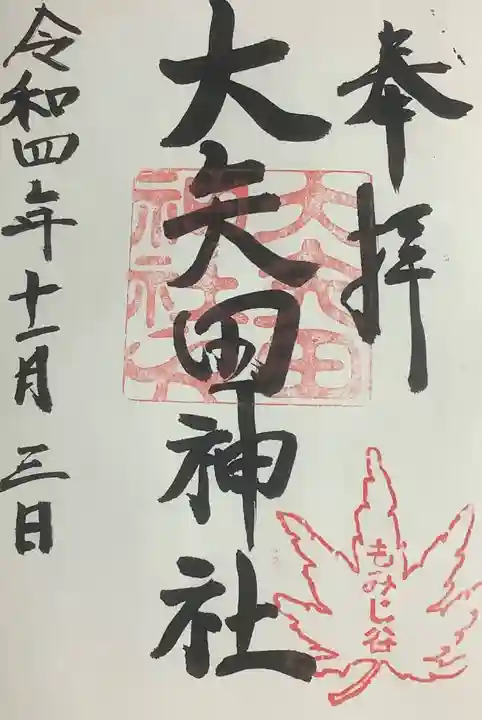 奉拝
大矢田神社
令和四年十一月三日
もみじ谷